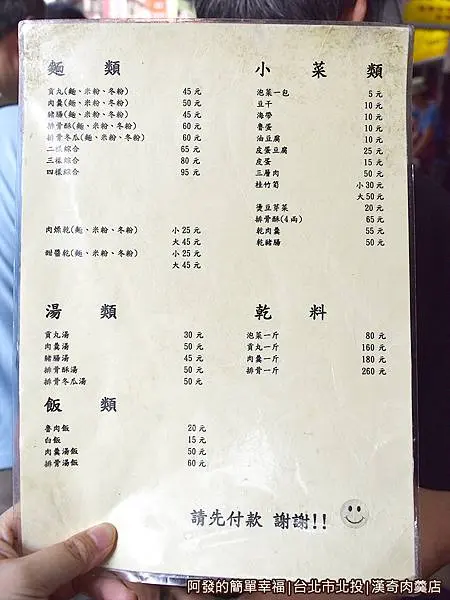 麵 類
貢丸(麵、米粉、冬粉) 45 元
肉羹(麵、米粉、冬粉) 50 元
豬腸(麵、米粉、冬粉) 45 元
排骨酥(麵、米粉、冬粉) 60 元
排骨冬瓜(麵、米粉、冬粉) 60 元
二樣綜合 65 元
三樣綜合 80 元
四樣綜合 95 元
肉燥乾(麵、米粉、冬粉) 小 25 元
大 45 元
甜醬乾(麵、米粉、冬粉) 小 25 元
大 45 元
小 菜 類
泡菜一包 5 元
豆干 10 元
海帶 10 元
魯蛋 10 元
油豆腐 10 元
皮蛋豆腐 25 元
皮蛋 15 元
三層肉 50 元
桂竹筍 小 30 元
大 50 元
燙豆芽菜 20 元
排骨酥(4兩) 65 元
乾肉羹 55 元
乾豬腸 50 元
湯 類
貢丸湯 30 元
肉羹湯 50 元
豬腸湯 45 元
排骨酥湯 50 元
排骨冬瓜湯 50 元
乾 料
泡菜一斤 80 元
貢丸一斤 160 元
肉羹一斤 180 元
排骨一斤 260 元
飯 類
魯肉飯 20 元
白飯 15 元
肉羹湯飯 50 元
排骨湯飯 60 元
請先付款 謝謝!!
阿發的簡單幸福|台北市北投|漢奇肉羹店